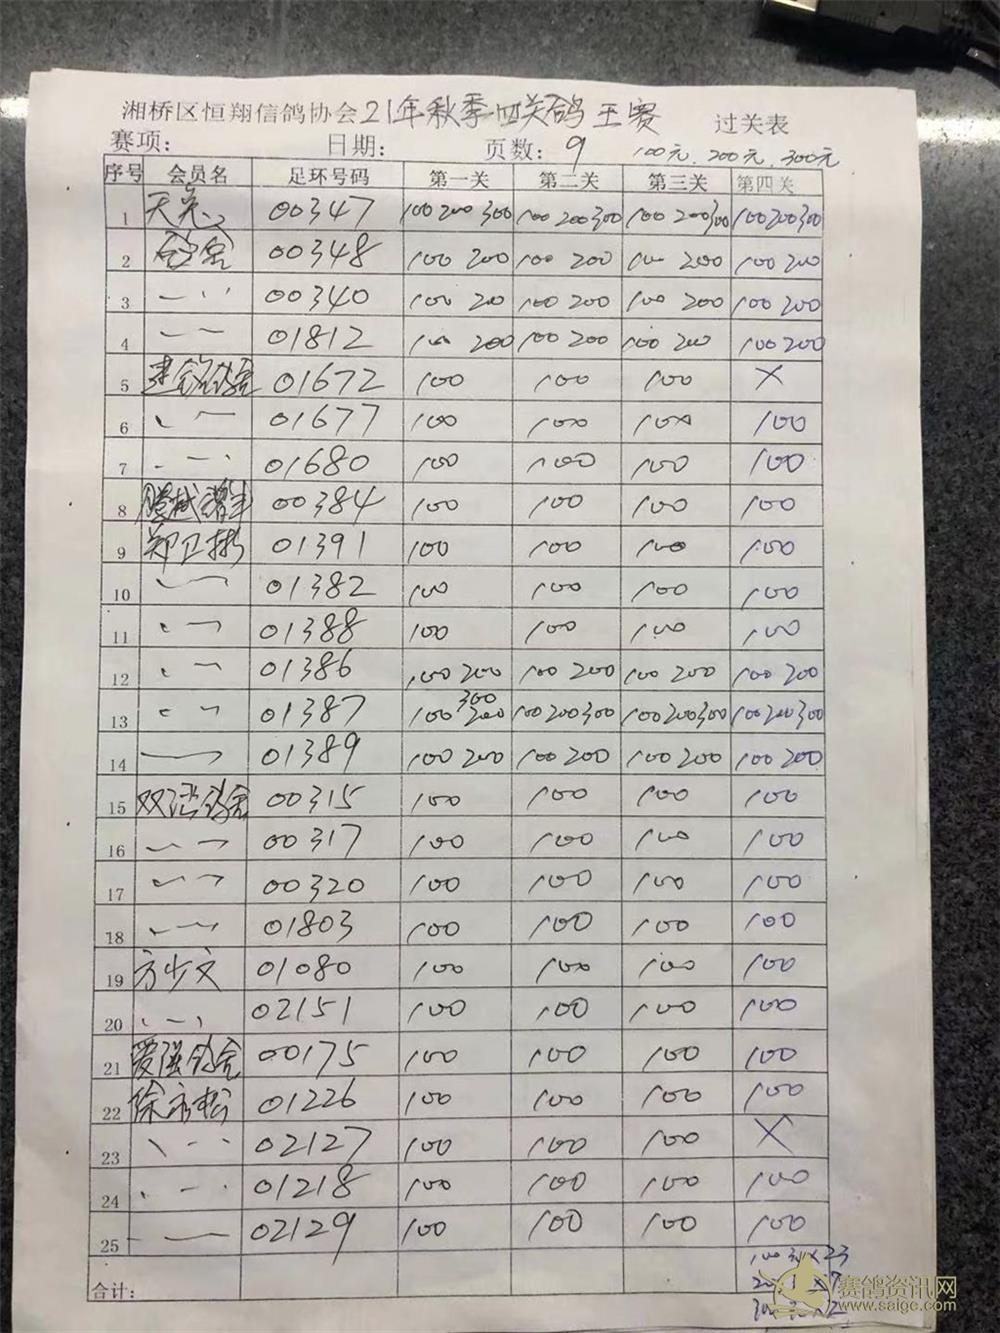 湘桥区恒翔信鸽协会21年秋季四关鸽王赛 过关表
赛项: 日期: 页数: 9 100元.200元.300元
序号 会员名 足环号码 第一关 第二关 第三关 第四关
1 00347 100 200 300 100 200 300 100 200 300 100 200 300
2 00348 100 200 100 200 100 200 100 200
3 00340 100 200 100 200 100 200 100 200
4 01812 100 200 100 200 100 200 100 200
5 01672 100 100 100 ×
6 01677 100 100 100 100
7 01680 100 100 100 100
8 00384 100 100 100 100
9 郑卫彬 01391 100 100 100 100
10 01382 100 100 100 100
11 01388 100 100 100 100
12 01386 100 200 100 200 100 200 100 200
13 01387 100 200 300 100 200 300 100 200 300 100 200 300
14 01389 100 200 100 200 100 200 100 200
15 00315 100 100 100 100
16 00317 100 100 100 100
17 00320 100 100 100 100
18 01803 100 100 100 100
19 方少文 01080 100 100 100 100
20 02151 100 100 100 100
21 爱强鸽舍 00175 100 100 100 100
22 徐永松 01226 100 100 100 100
23 02127 100 100 100 ×
24 01218 100 100 100 100
25 02129 100 100 100 100
合计:
赛鸽资讯网
www.saige.com